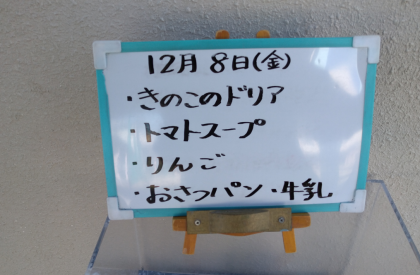 12月 8日(金)
・きのこのドリア
・トマトスープ
・りんご
・おさつパン・牛乳